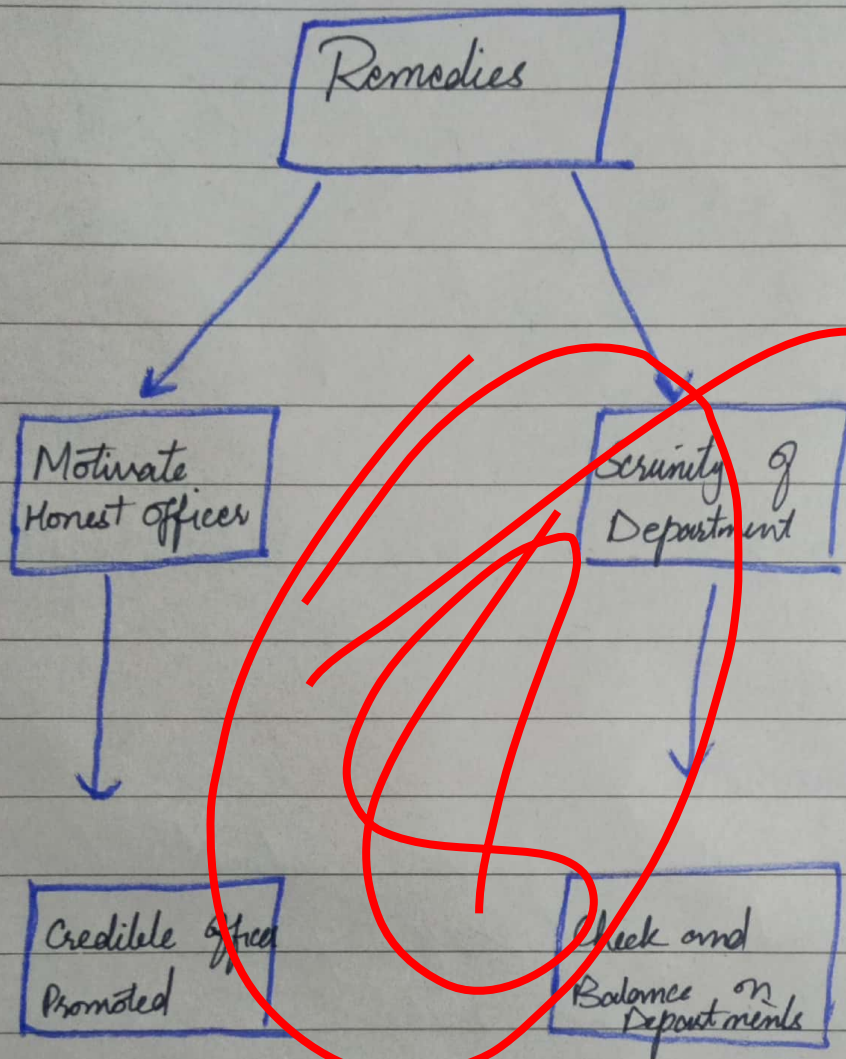 Remedies
Motivate
Honest officer
Scrunity of
Department
Credible officer
Promoted
Check and
Balance on
Departments